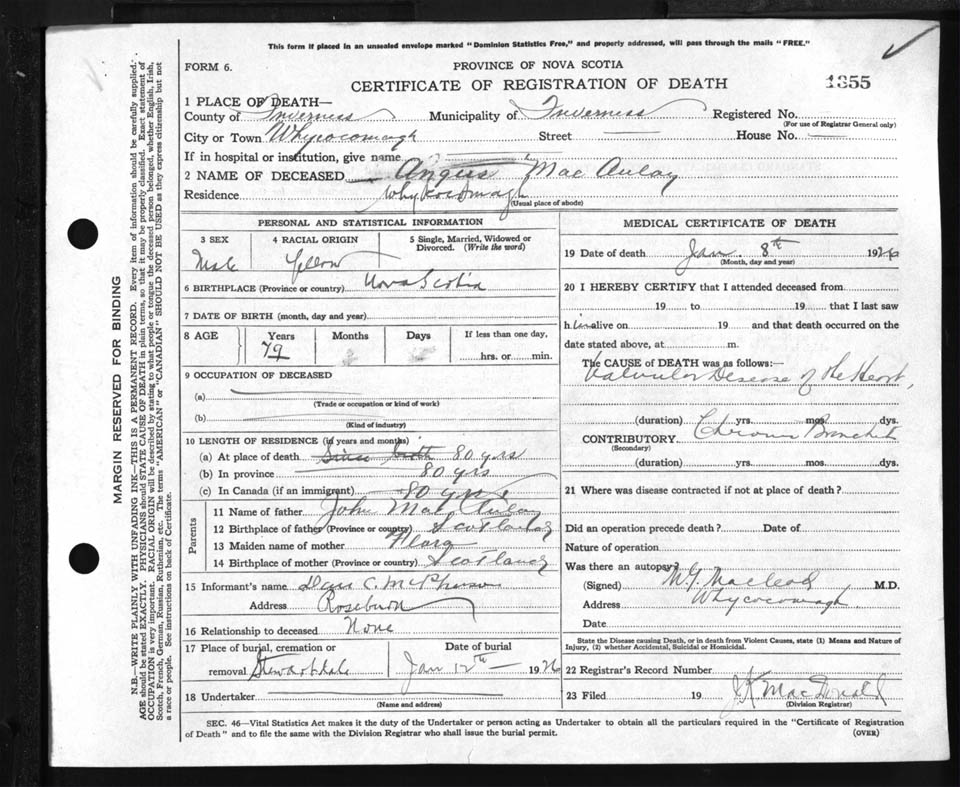 This form if placed in an unsealed envelope marked "Dominion Statistics Free," and properly addressed, will pass through the mails "FREE."
FORM 6.
PROVINCE OF NOVA SCOTIA
CERTIFICATE OF REGISTRATION OF DEATH
1355
1 PLACE OF DEATH—
County of Inverness Municipality of Inverness Registered No.
(For use of Registrar General only)
City or Town Whycocomagh Street House No.
If in hospital or institution, give name
2 NAME OF DECEASED Angus Mac Aulay
Residence Whycocomagh
(Usual place of abode)
PERSONAL AND STATISTICAL INFORMATION
3 SEX 4 RACIAL ORIGIN 5 Single, Married, Widowed or Divorced. (Write the word)
Male Yellow
6 BIRTHPLACE (Province or country) Nova Scotia
7 DATE OF BIRTH (month, day and year)
8 AGE Years Months Days If less than one day,
79 hrs. or min.
9 OCCUPATION OF DECEASED
(a)
(Trade or occupation or kind of work)
(b)
(Kind of industry)
10 LENGTH OF RESIDENCE (in years and months)
(a) At place of death Since birth 80 yrs
(b) In province 80 yrs
(c) In Canada (if an immigrant) 80 yrs
Parents
11 Name of father John Mac Aulay
12 Birthplace of father (Province or country) Scotland
13 Maiden name of mother Flora
14 Birthplace of mother (Province or country) Scotland
15 Informant's name C. McPherson
Address Roseburn
16 Relationship to deceased None
17 Place of burial, cremation or Date of burial
removal Stewartdale Jan 12th 1926
18 Undertaker
(Name and address)
MEDICAL CERTIFICATE OF DEATH
19 Date of death Jan. 8th 1926
(Month, day and year)
20 I HEREBY CERTIFY that I attended deceased from
19 to 19 that I last saw
him alive on 19 and that death occurred on the
date stated above, at m.
The CAUSE of DEATH was as follows:—
Valvular Desease of the Heart,
(duration) yrs. mos. dys.
CONTRIBUTORY Chronic Bronchitis
(Secondary)
(duration) yrs. mos. dys.
21 Where was disease contracted if not at place of death?
Did an operation precede death? Date of
Nature of operation
Was there an autopsy?
(Signed) Macleod M.D.
Address Whycocomagh
Date
State the Disease causing Death, or in death from Violent Causes, state (1) Means and Nature of
Injury, (2) whether Accidental, Suicidal or Homicidal.
22 Registrar's Record Number
23 Filed 19 J. K MacDonald
(Division Registrar)
SEC. 46—Vital Statistics Act makes it the duty of the Undertaker or person acting as Undertaker to obtain all the particulars required in the "Certificate of Registration
of Death" and to file the same with the Division Registrar who shall issue the burial permit.
(OVER)
MARGIN RESERVED FOR BINDING
N.B.—WRITE PLAINLY WITH UNFADING INK—THIS IS A PERMANENT RECORD. Every item of information should be carefully supplied.
AGE should be stated EXACTLY. PHYSICIANS should STATE CAUSE OF DEATH in plain terms, so that it may be properly classified. Exact statement of
OCCUPATION is very important. RACIAL ORIGIN will be described by stating to what people or tongue the deceased person belonged, whether English, Irish,
Scotch, French, German, Russian, Ruthenian, etc. The terms "AMERICAN" or "CANADIAN" SHOULD NOT BE USED as they express citizenship but not
a race or people. See instructions on back of Certificate.